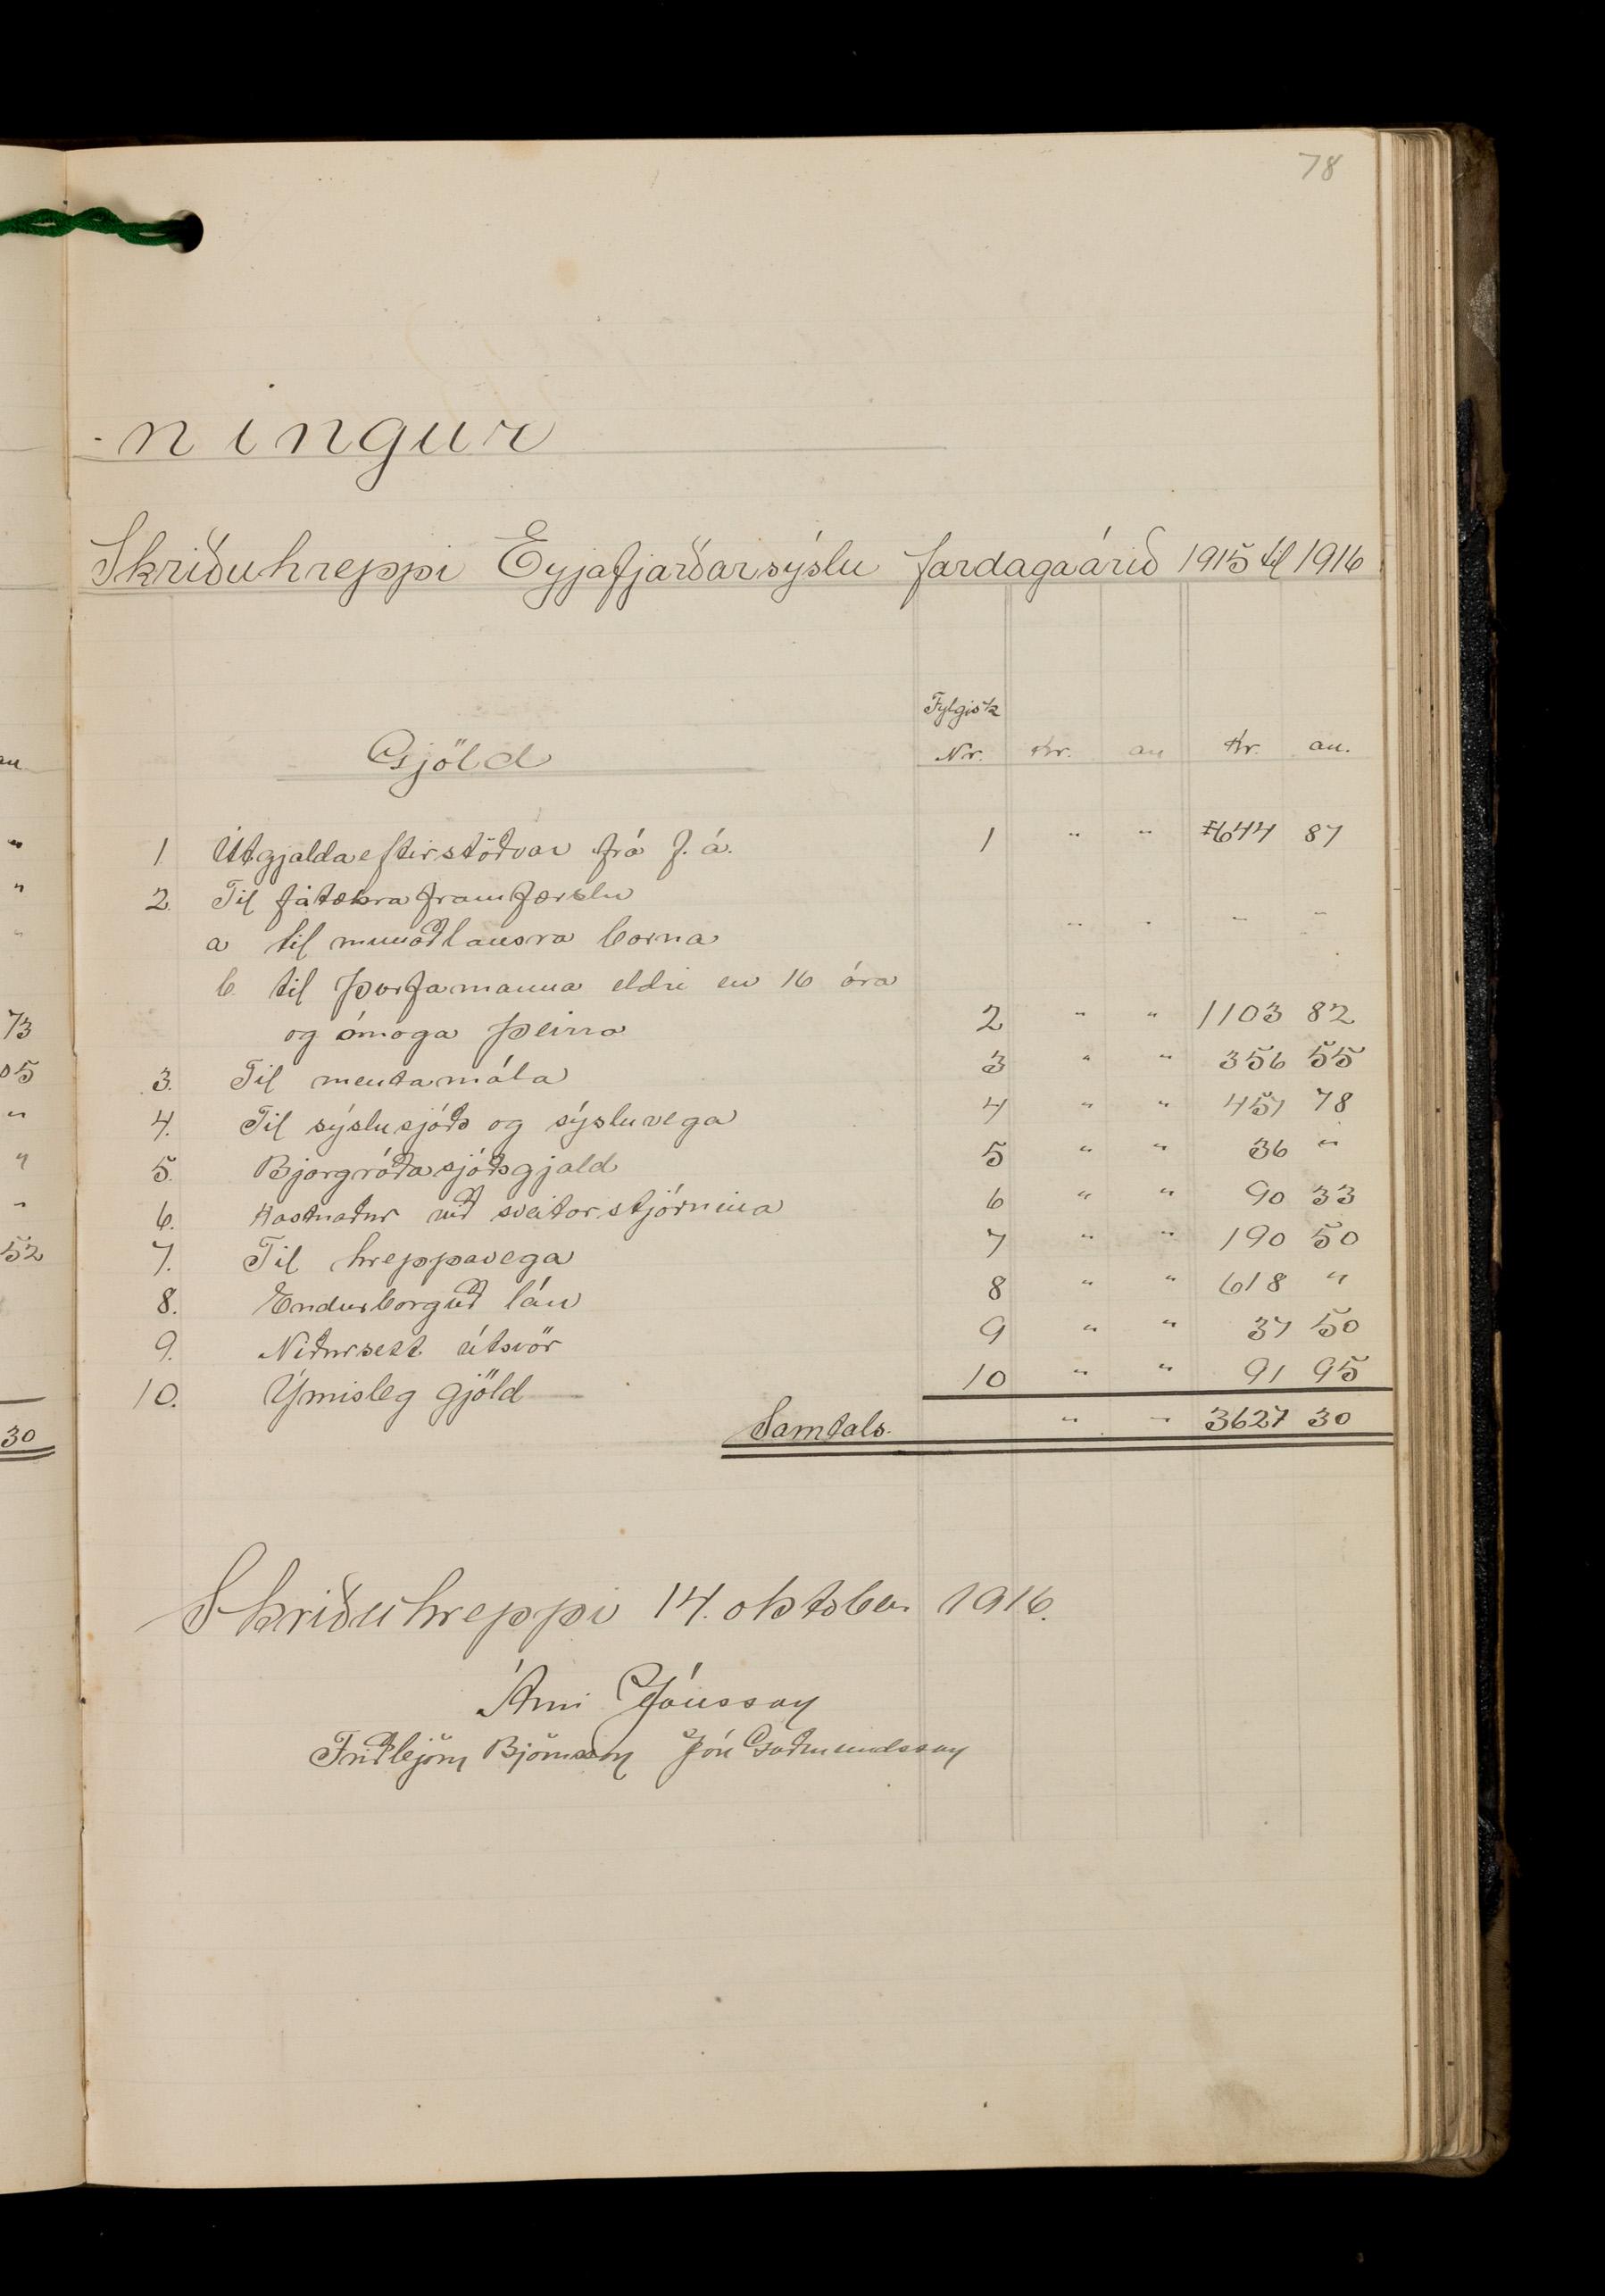 78
-ningur
Skriðuhreppi Eyjafjarðarsýslu fardagaárið 1915 til 1916
Fylgisk
Gjöld Nr. Kr. au Kr. au.
au
1 Útgjaldaeftirstöðvar frá f. á. 1 " " 644 87
2. Til fátækraframfærslu
a til munaðlausra barna " " " "
b. til þurfamanna eldri en 16 ára
og ómaga þeirra 2 " " 1103 82
73
3. Til mentamála 3 " " 356 55
05
4. Til sýslusjóðs og sýsluvega 4 " " 457 78
5. Bjargráðasjóðsgjald 5 " " 36 "
6. Kostnaður við sveitarstjórnina 6 " " 90 33
7. Til hreppavega 7 " " 190 50
52
8. Endurborguð lán 8 " " 618 "
9. Niðursett útsvör 9 " " 37 50
10. Ýmisleg gjöld 10 " " 91 95
Samtals. " " 3627 30
30
Skriðuhreppi 14. október 1916.
Árni Jónsson
Friðbjörn Björnsson Jón Guðmundsson